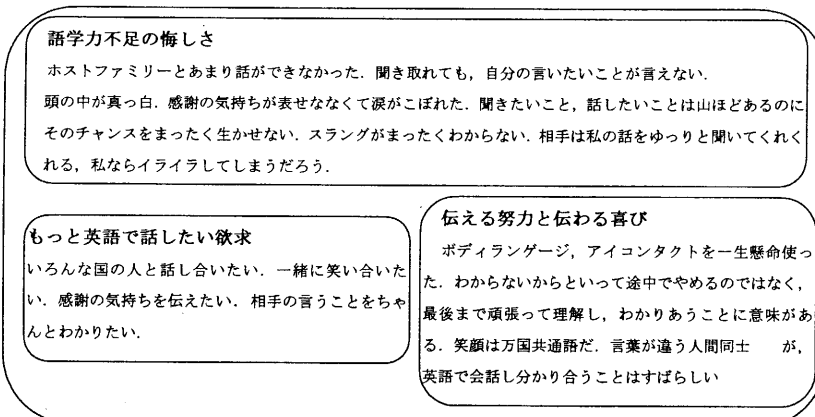 語学力不足の悔しさ
ホストファミリーとあまり話ができなかった．聞き取れても，自分の言いたいことが言えない．
頭の中が真っ白．感謝の気持ちが表せななくて涙がこぼれた．聞きたいこと，話したいことは山ほどあるのに
そのチャンスをまったく生かせない．スラングがまったくわからない．相手は私の話をゆっりと聞いてくれく
れる，私ならイライラしてしまうだろう．
もっと英語で話したい欲求
いろんな国の人と話し合いたい．一緒に笑い合いた
い．感謝の気持ちを伝えたい．相手の言うことをちゃ
んとわかりたい．
伝える努力と伝わる喜び
ボディランゲージ，アイコンタクトを一生懸命使っ
た．わからないからといって途中でやめるのではなく，
最後まで頑張って理解し，わかりあうことに意味があ
る．笑顔は万国共通語だ．言葉が違う人間同士　　が，
英語で会話し分かり合うことはすばらしい